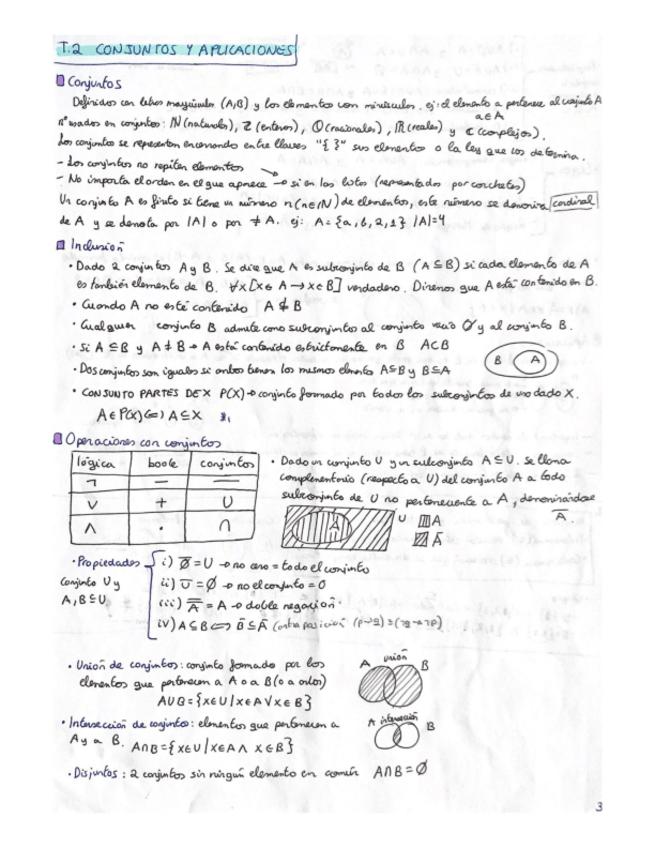 T.2 CONJUNTOS Y APLICACIONES
Conjuntos
Definidos con letras mayúsculas (A,B) y los elementos con minúsculas. ej: el elemento a pertenece al conjunto A
a∈A
nº usados en conjuntos: ℕ (naturales), ℤ (enteros), ℚ (racionales), ℝ (reales) y ℂ (complejos).
Los conjuntos se representan encerrando entre llaves "{ }" sus elementos o la ley que los determina.
- Los conjuntos no repiten elementos
- No importa el orden en el que aparece → si en las listas (representadas por corchetes)
Un conjunto A es finito si tiene un número n (n∈ℕ) de elementos, este número se denomina cardinal
de A y se denota por |A| o por ≠ A. ej: A = {a, b, 2, 1} |A|=4
Inclusión
• Dado 2 conjuntos A y B. Se dice que A es subconjunto de B (A ⊆ B) si cada elemento de A
es también elemento de B. ∀x [x ∈ A → x ∈ B] verdadero. Diremos que A está contenido en B.
• Cuando A no esté contenido A ⊄ B
• Cualquier conjunto B admite como subconjuntos al conjunto vacío ∅ y al conjunto B.
• Si A ⊆ B y A ≠ B → A está contenido estrictamente en B A⊂B
B A
• Dos conjuntos son iguales si ambos tienen los mismos elmentos A⊆B y B⊆A
• CONJUNTO PARTES DE X P(X) → conjunto formado por todos los subconjuntos de uno dado X.
A ∈ P(X) ⟺ A ⊆ X
Operaciones con conjuntos
lógica boole conjuntos
¬ — —
∨ + ∪
∧ · ∩
• Dado un conjunto U y un subconjunto A ⊆ U. Se llama
complementario (respecto a U) del conjunto A a todo
subconjunto de U no perteneciente a A, denominándose
A̅.
A U A
A̅
• Propiedades
conjunto U y
A, B ⊆ U
i) ∅̅ = U → no cero = todo el conjunto
ii) U̅ = ∅ → no el conjunto = 0
iii) A̿ = A → doble negación
iv) A ⊆ B ⟺ B̅ ⊆ A̅ (contraposición (p→q) ≡ (¬q→¬p)
• Unión de conjuntos: conjunto formado por los
elementos que pertenecen a A o a B (o a ambos)
A∪B = {x∈U | x∈A ∨ x∈B}
A unión B
• Intersección de conjuntos: elementos que pertenecen a
A y a B. A∩B = {x∈U | x∈A ∧ x∈B}
A intersección B
• Disjuntos: 2 conjuntos sin ningún elemento en común A∩B = ∅
3